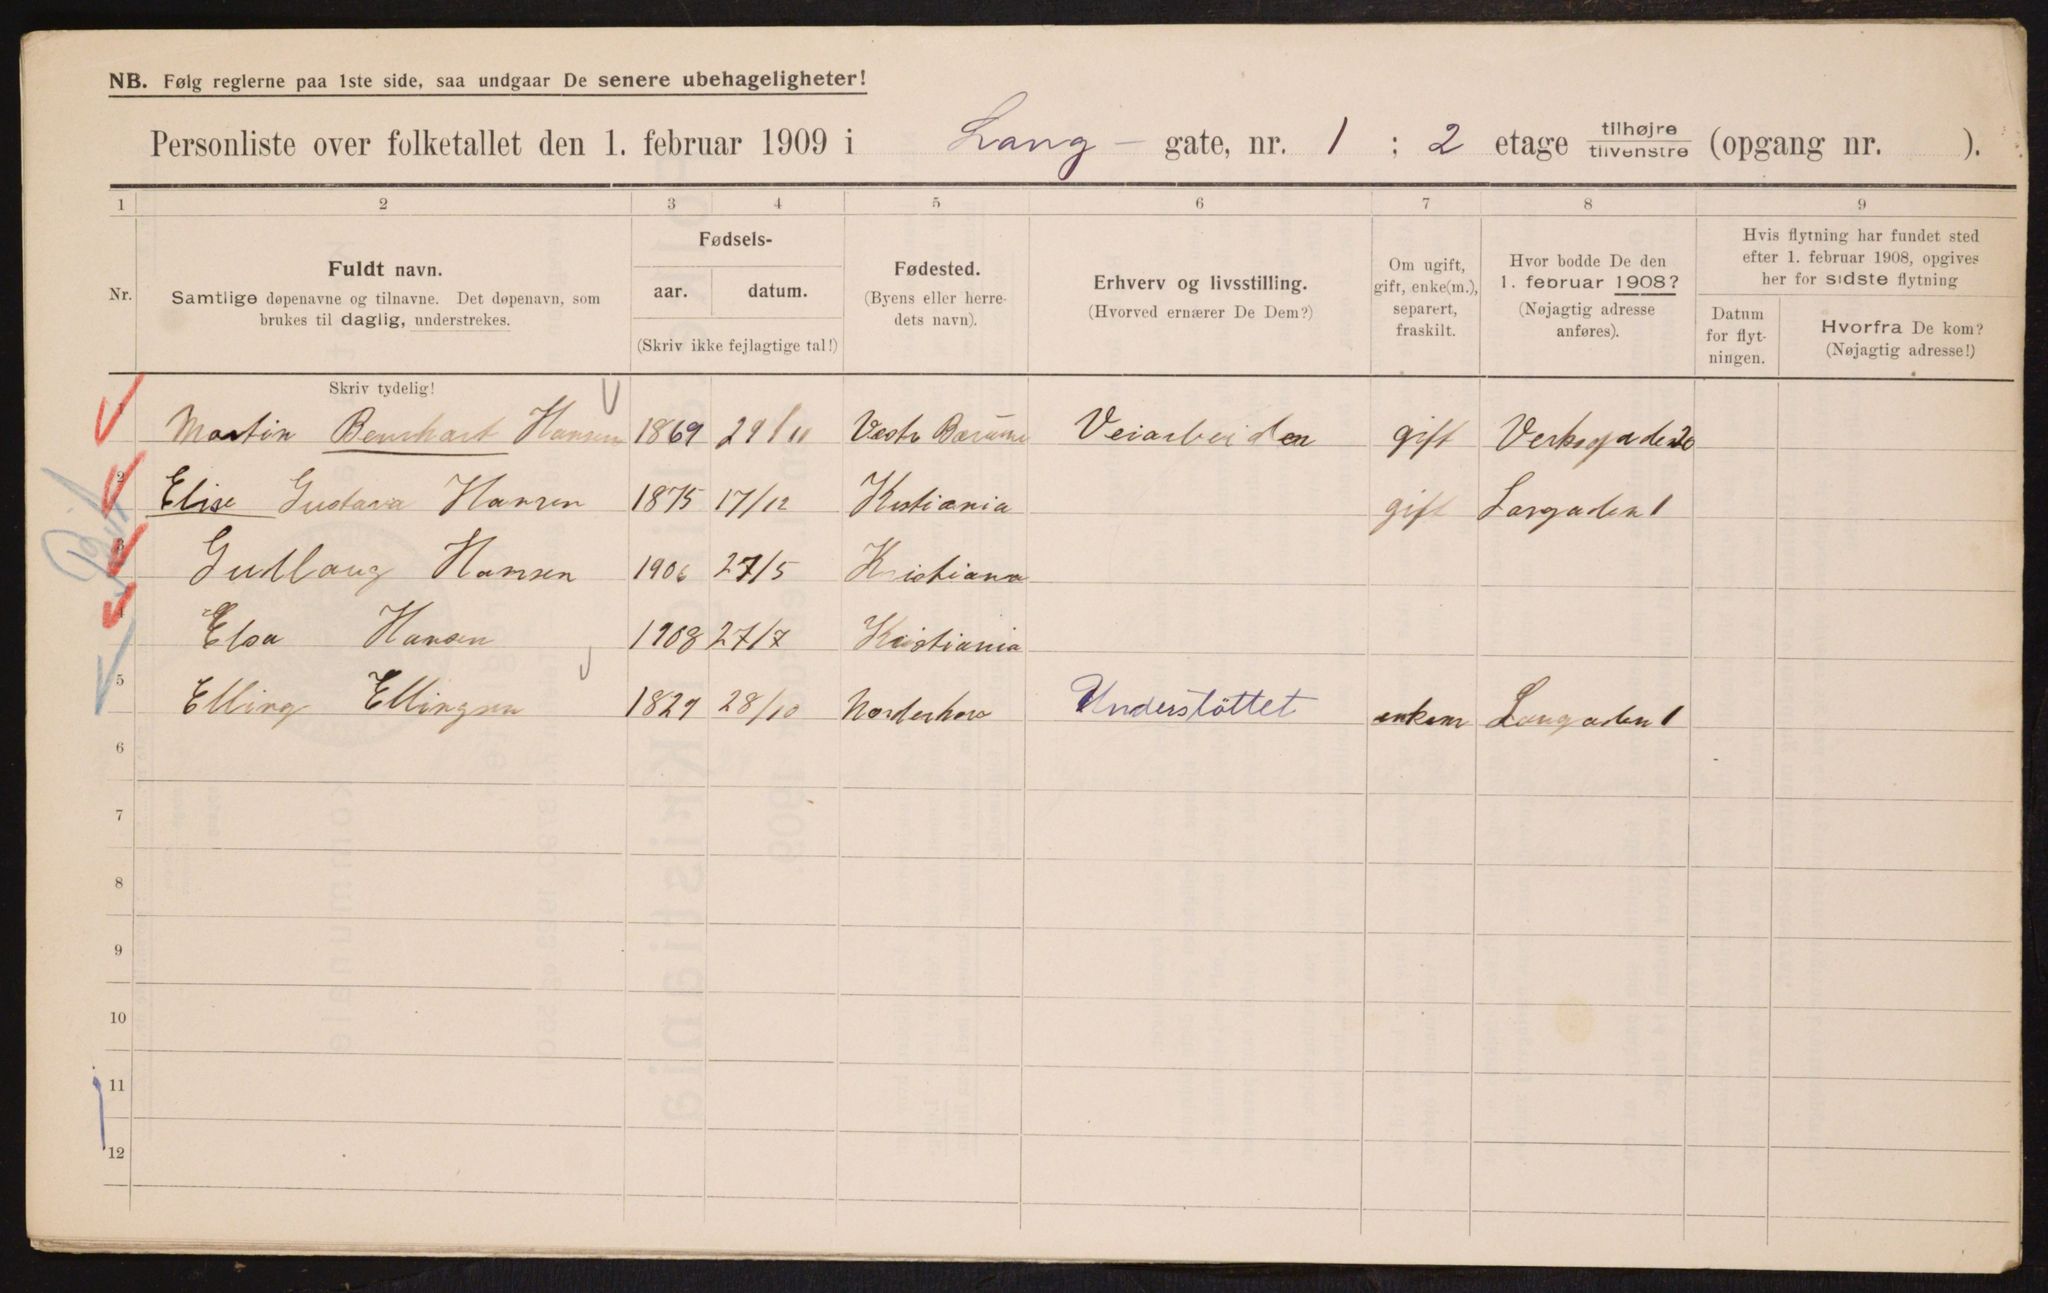 NB. Følg reglerne paa 1ste side, saa undgaar De senere ubehageligheter!
Personliste over folketallet den 1. februar 1909 i Lang- gate, nr. 1 ; 2 etage tilhøjre tilvenstre (opgang nr. ).
1 2 3 4 5 6 7 8 9
Nr.
Fuldt navn.
Samtlige døpenavne og tilnavne. Det døpenavn, som
brukes til daglig, understrekes.
Fødsels-
aar. datum.
(Skriv ikke fejlagtige tal!)
Fødested.
(Byens eller herre-
dets navn).
Erhverv og livsstilling.
(Hvorved ernærer De Dem?)
Om ugift,
gift, enke(m.),
separert,
fraskilt.
Hvor bodde De den
1. februar 1908?
(Nøjagtig adresse
anføres).
Hvis flytning har fundet sted
efter 1. februar 1908, opgives
her for sidste flytning
Datum
for flyt-
ningen.
Hvorfra De kom?
(Nøjagtig adresse!)
Skriv tydelig!
1 Martin Bernhart Hansen 1869 29/11 Vestr Bærums Veiarbeider gift Verksgaden 20
2 Elise Gustava Hansen 1875 17/12 Kristiania gift Langaden 1
3 Gudlaug Hansen 1906 27/5 Kristiana
4 Elsa Hansen 1908 27/7 Kristiania
5 Elling Ellingsen 1829 28/10 Norderhov Understöttet enkem Langaden 1
6
7
8
9
10
11
12